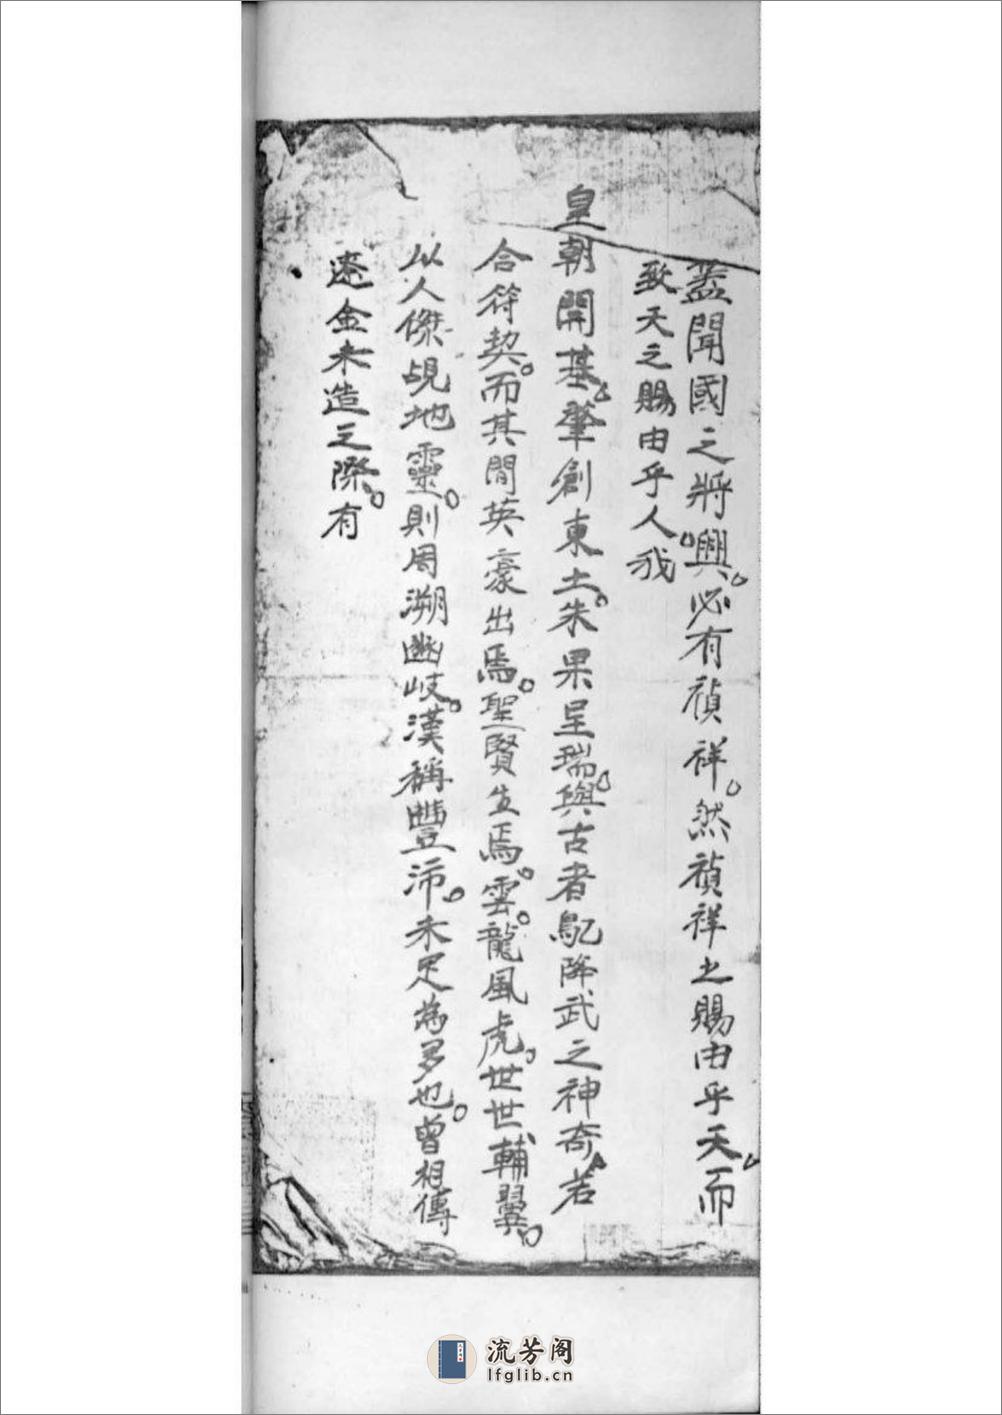 蓋聞國之將興。必有禎祥。然禎祥之賜由乎天。而
致天之賜由乎人。我
皇朝開基。肇創東土。朱果呈瑞。與古者鳦降武之神奇。若
合符契。而其間英豪出焉。聖賢生焉。雲龍風虎。世世輔翼。
以人傑覘地靈。則周溯豳岐。漢稱豐沛。未足為多也。曾相傳
遼金未造之際。有
流芳阁
lfglib.cn